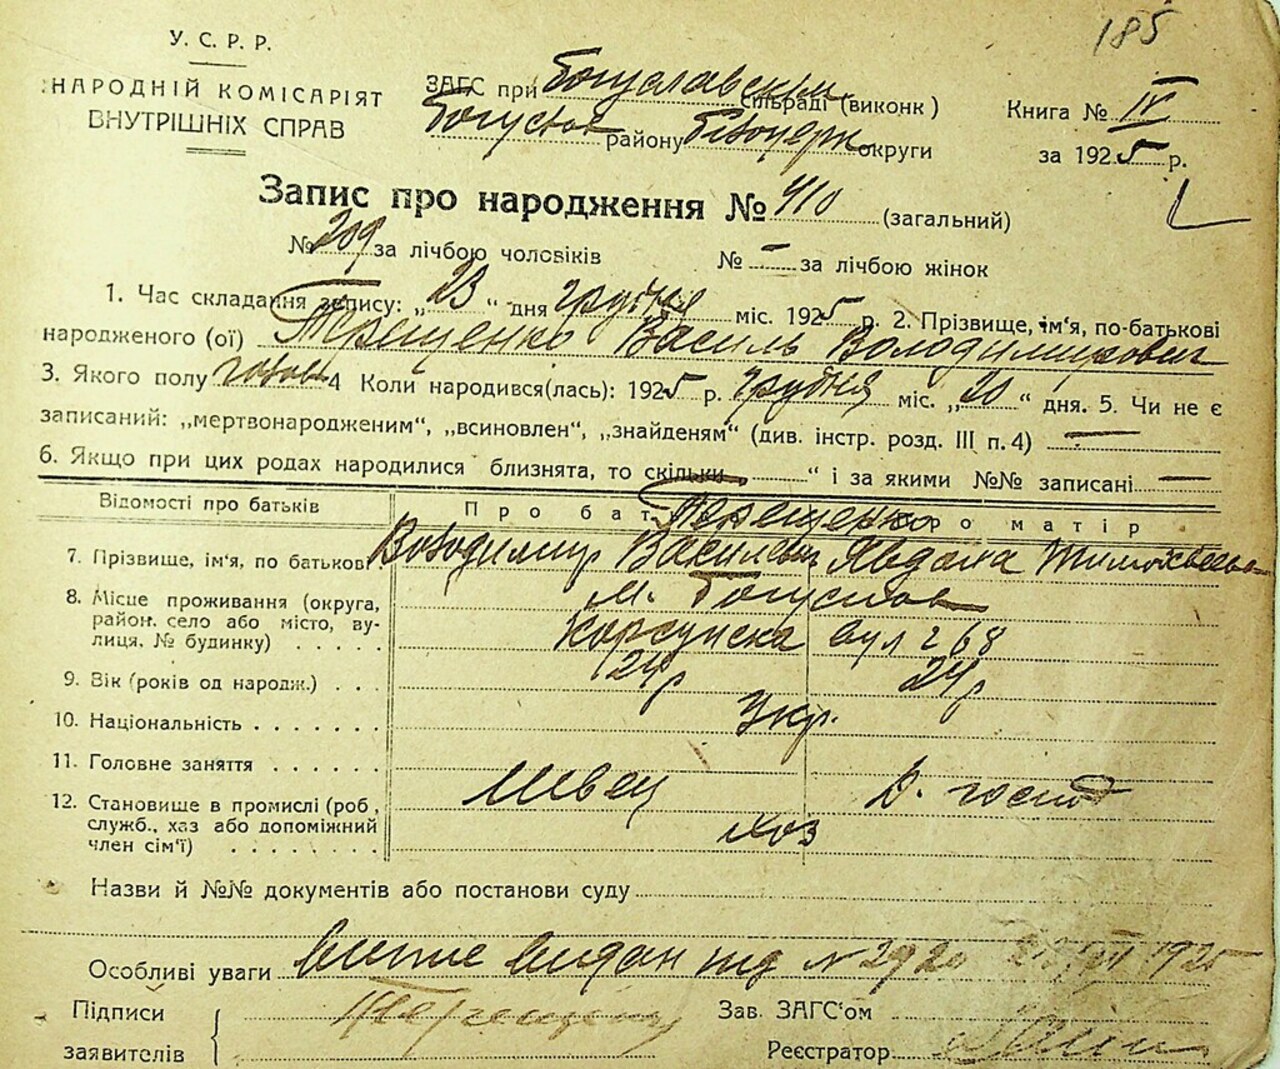 185
У. С. Р. Р.
НАРОДНІЙ КОМІСАРІЯТ
ВНУТРІШНІХ СПРАВ
ЗАГС при Богуславськім сільраді (виконк)
Богуслав району Білоцерк округи
Книга № IV
за 1925 р.
Запис про народження № 410 (загальний)
№ 209 за лічбою чоловіків № – за лічбою жінок
1. Час складання запису: „23“ дня грудня міс. 1925 р. 2. Прізвище, ім'я, по-батькові
народженого (ої) Терещенко Василь Володимирович
3. Якого полу 4 Коли народився(лась): 1925 р. грудня міс. „20“ дня. 5. Чи не є
записаний: „мертвонародженим“, „всиновлен“, „знайденям“ (див. інстр. розд. III п. 4) —
6. Якщо при цих родах народилися близнята, то скільки “ і за якими №№ записані —
Відомості про батьків Про бат Про матір
Терещенко
7. Прізвище, ім'я, по батькові Володимир Василевич Явдоха Тимохвеевна
8. Місце проживання (округа, м. Богуслав
район. село або місто, ву-
лиця, № будинку) . . . . . Корсунська вул 68
9. Вік (років од народж.) . . . 24р 24р
10. Національність . . . . . . . Укр.
11. Головне заняття . . . . . . Швец Д. господ
12. Становище в промислі (роб,
служб., хаз або допоміжний хоз
член сім'ї) . . . . . . . .
Назви й №№ документів або постанови суду
Особливі уваги витяг видан під № 292 XII 1925
Підписи Терещенко
заявителів
Зав. ЗАГС'ом
Реєстратор